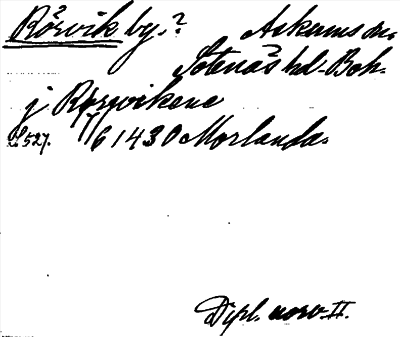 Rörvik by.? Askums sn.
Sotenäs hd. Boh.
j Rørwikene
S 527. 17/6 1430 Morlanda.
Dipl. norv. II.